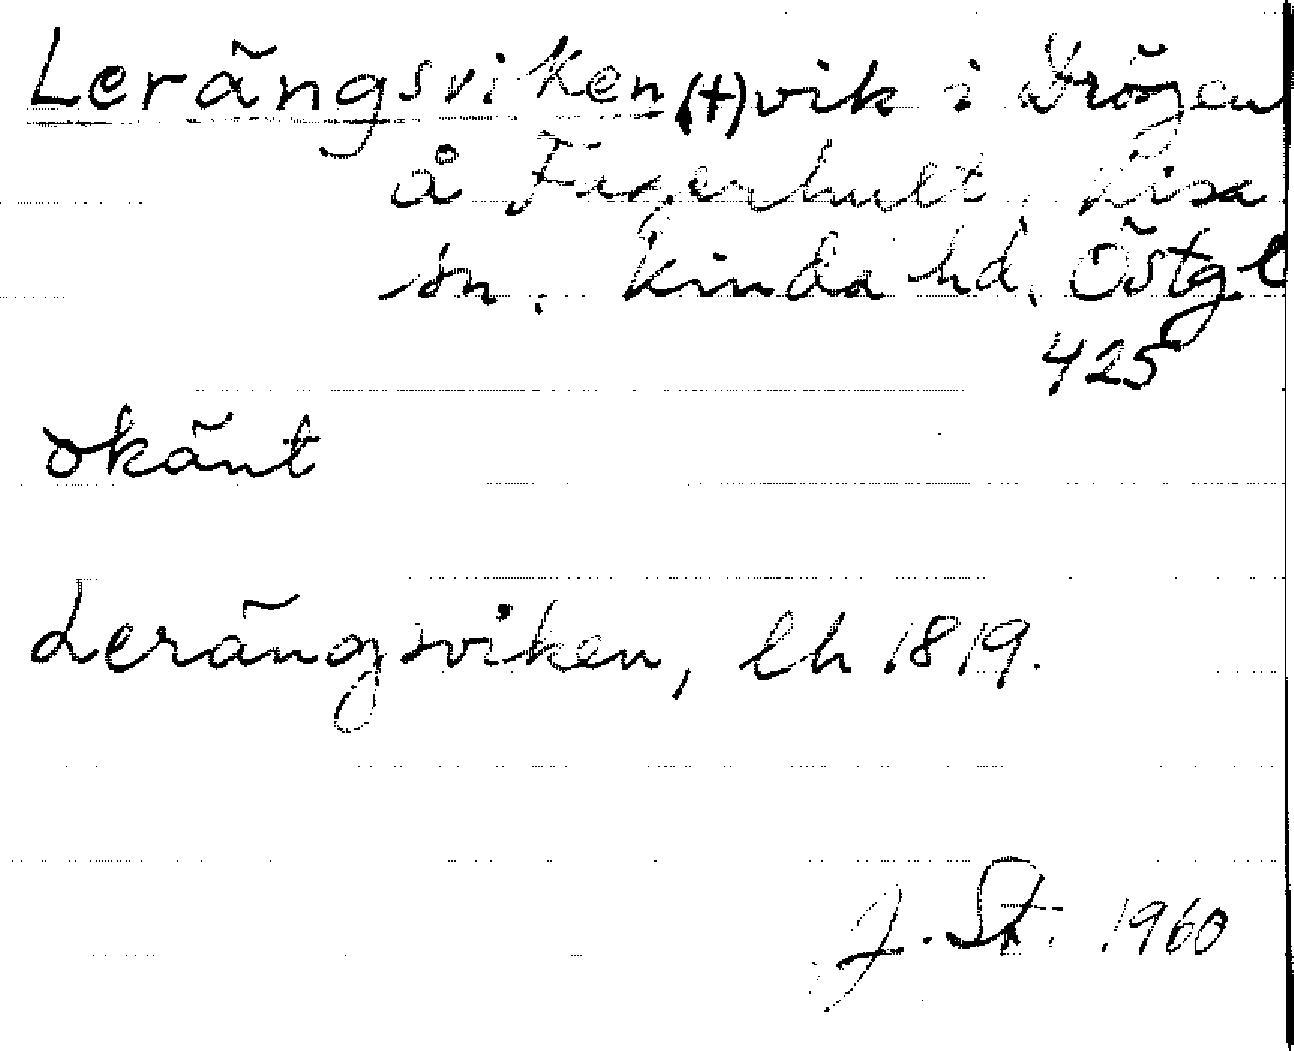 Lerängsviken (+) vik i Drögen
å Fagerhult, Tisa
sn. Kinda hd. Östgl
425
okänt
Lerängsviken, lh 1819.
J. St. 1960